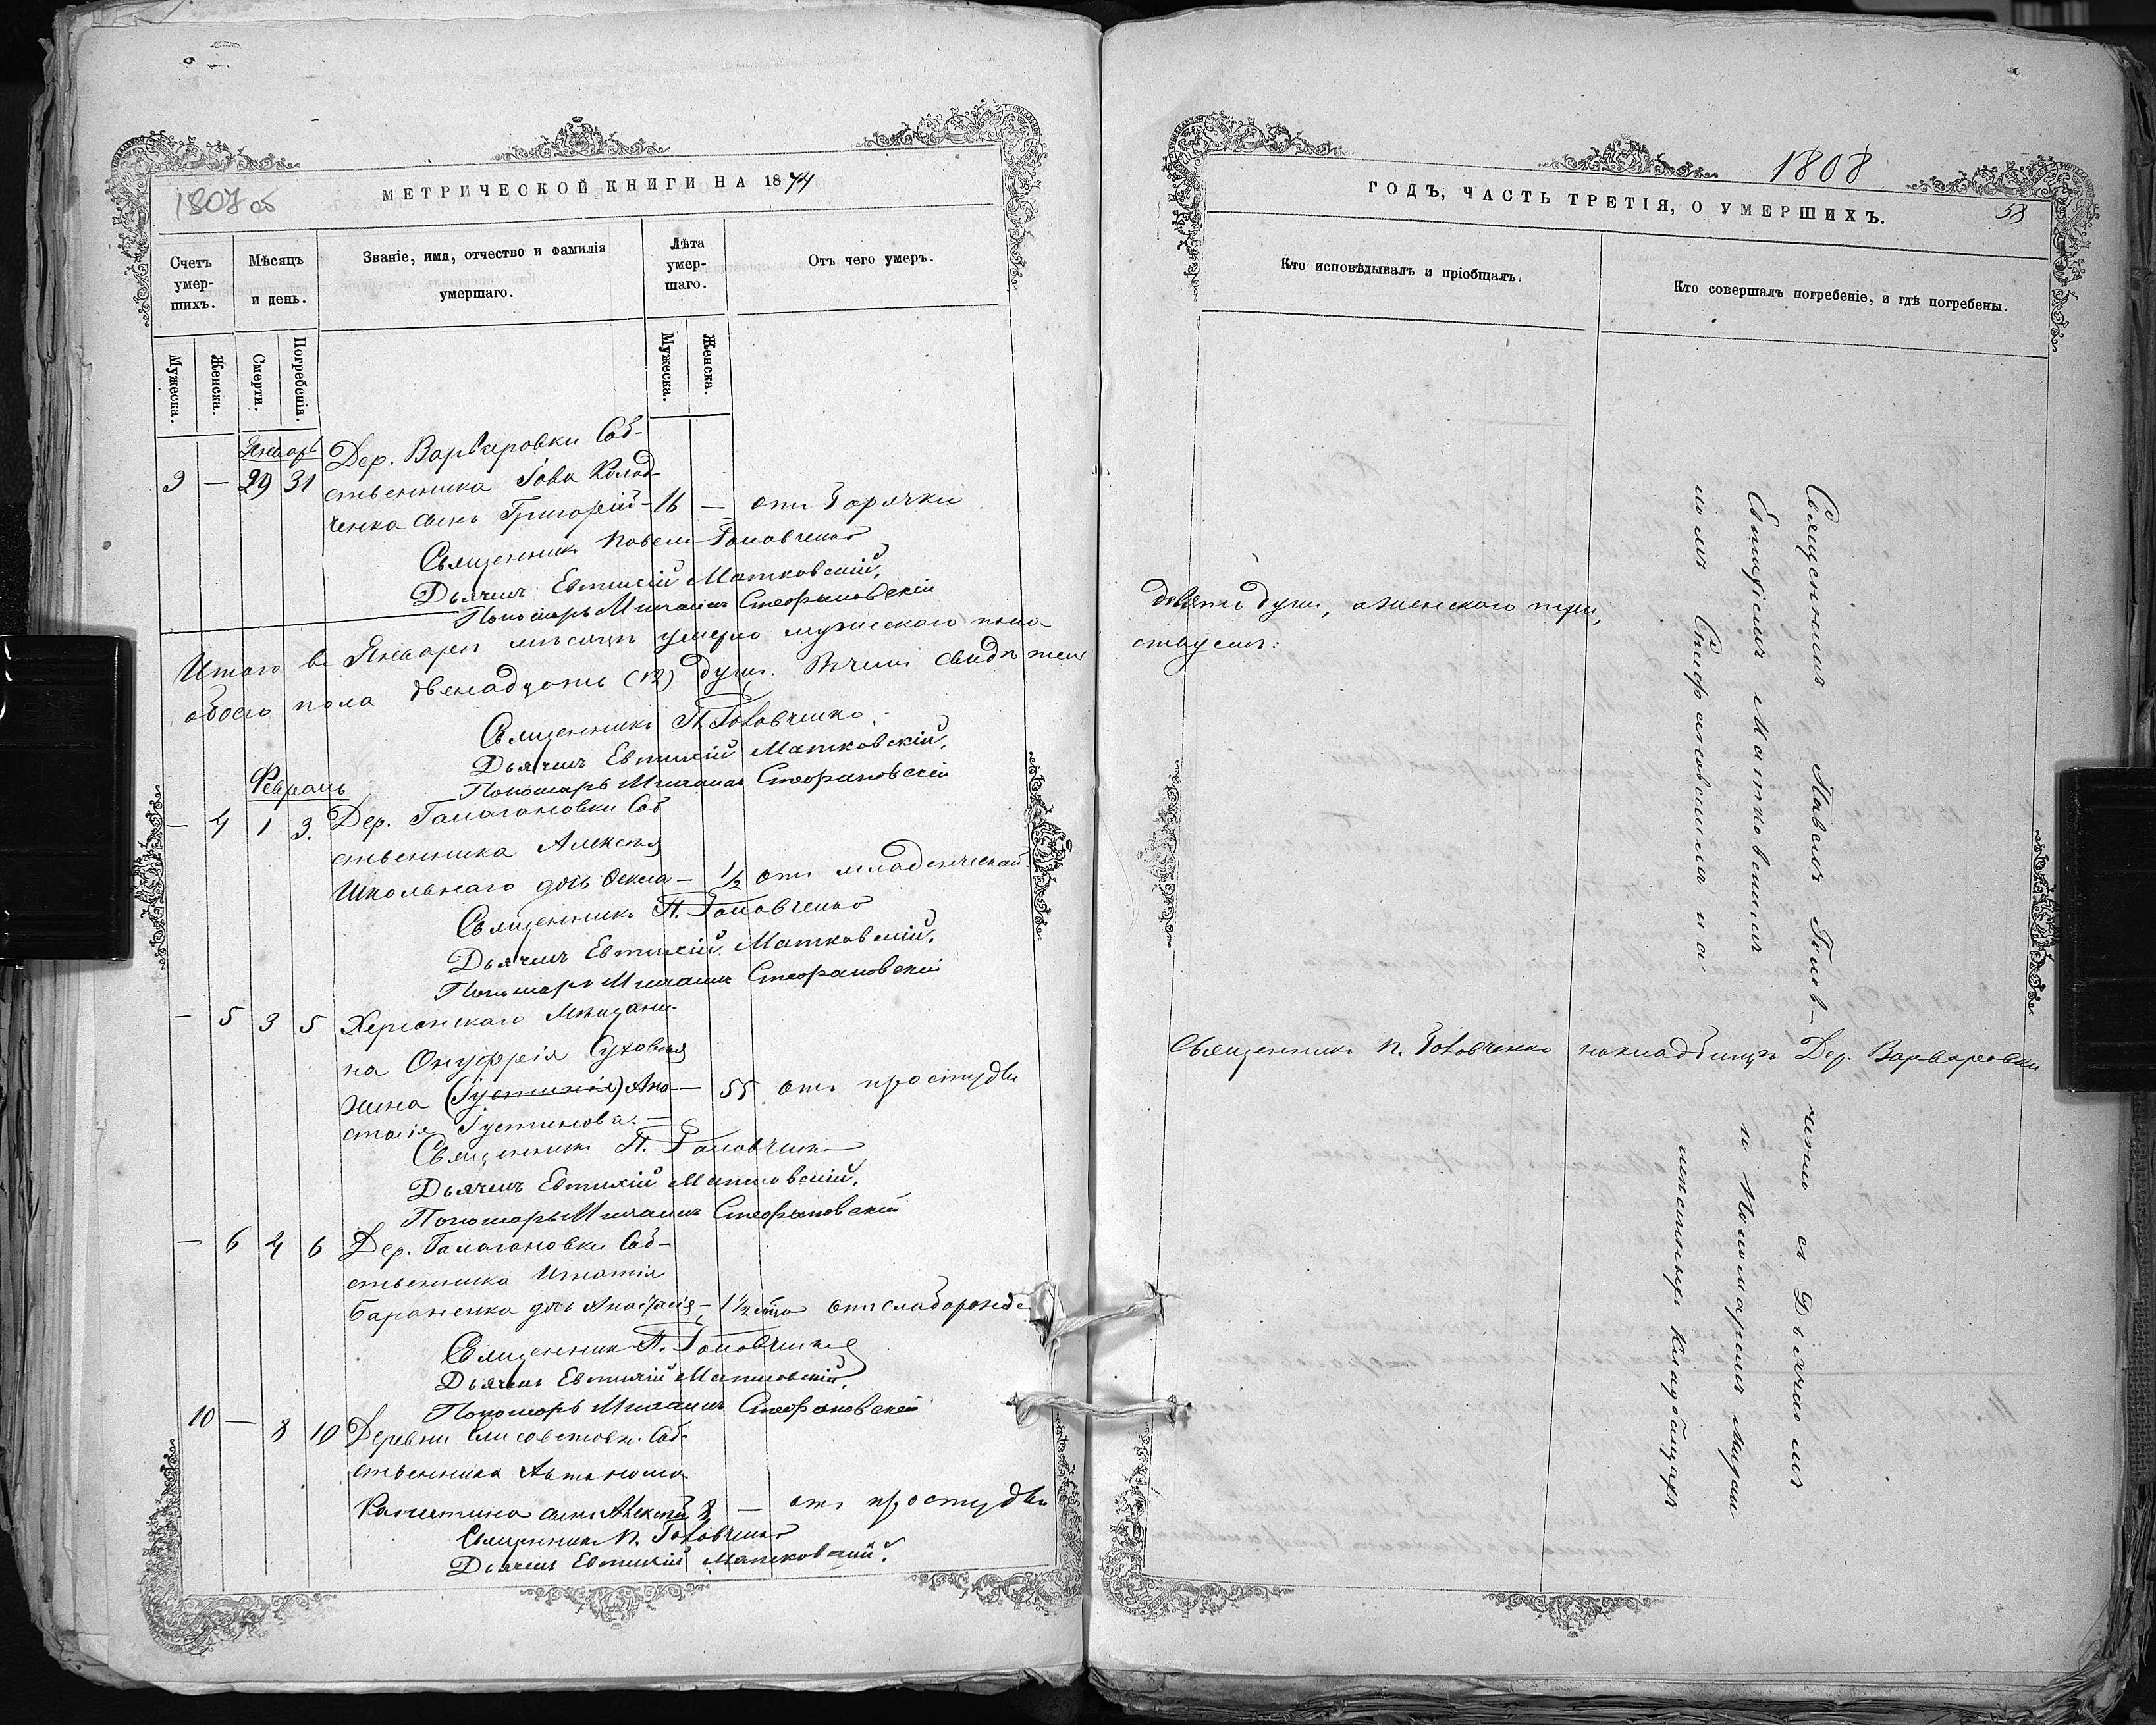 1807 об
МЕТРИЧЕСКОЙ КНИГИ НА 1874
Счетъ умер-шихъ.
Мѣсяцъ и день.
Званіе, имя, отчество и фамилія умершаго.
Лѣта умер-шаго.
Отъ чего умеръ.
Мужеска.
Женска.
Смерти.
Погребенія.
Мужеска.
Женска.
Январь
Дер. Варваровки Соб-
9 — 29 31 ственника Іова Колод-
ченка сынъ Григорій — 16 — отъ Горячки
Священникъ Павелъ Головченко
Дьячекъ Евтихій Матковскій.
Пономарь Михаилъ Стефановскій
Итого въ Январѣ мѣсяцѣ умерло мужескаго пола
обоего пола двенадцать (12) душъ. Въ чемъ свидѣтель
Священникъ П. Головченко.
Дьячекъ Евтихій Матковскій.
Пономарь Михаилъ Стефановскій
Февраль
— 4 1 3. Дер. Галагановки Соб
ственника Алексѣя
Школьнаго дочь — 1/2 отъ младенческой.
Священникъ П. Головченко
Дьячекъ Евтихій Матковскій.
Пономарь Михаилъ Стефановскій
— 5 3 5 Херсонскаго Мѣщани-
на Онуфрія
жена (Іустинія) Ана- — 55 отъ простуды
стасія Іустинова. —
Священникъ П. Головченко
Дьячекъ Евтихій Матковскій.
Пономарь Михаилъ Стефановскій
— 6 4 6 Дер. Галагановки Соб-
ственника Игнатія
Бараненка дочь Анастасія — 1 1/2 отъ слаборожде
Священникъ П. Головченко
Дьячекъ Евтихій Матковскій.
Пономарь Михаилъ Стефановскій
10 — 8 10 Деревни Елисаветовки Соб-
ственника Автонома
сынъ Алексѣй 8 — отъ простуды
Священникъ П. Головченко
Дьячекъ Евтихій Матковскій.
1808
58
ГОДЪ, ЧАСТЬ ТРЕТІЯ, О УМЕРШИХЪ.
Кто исповѣдывалъ и пріобщалъ.
Кто совершалъ погребеніе, и гдѣ погребены.
девять душъ, а женского три,
ствуемъ:
Священникъ П. Головченко на кладбищѣ Дер. Варваровки
Священникъ Павелъ Голов-ченко съ Дьячкомъ
Евтихіемъ Матковскимъ и Пономаремъ Михаи-
ломъ Стефановскимъ на мѣстныхъ кладбищахъ